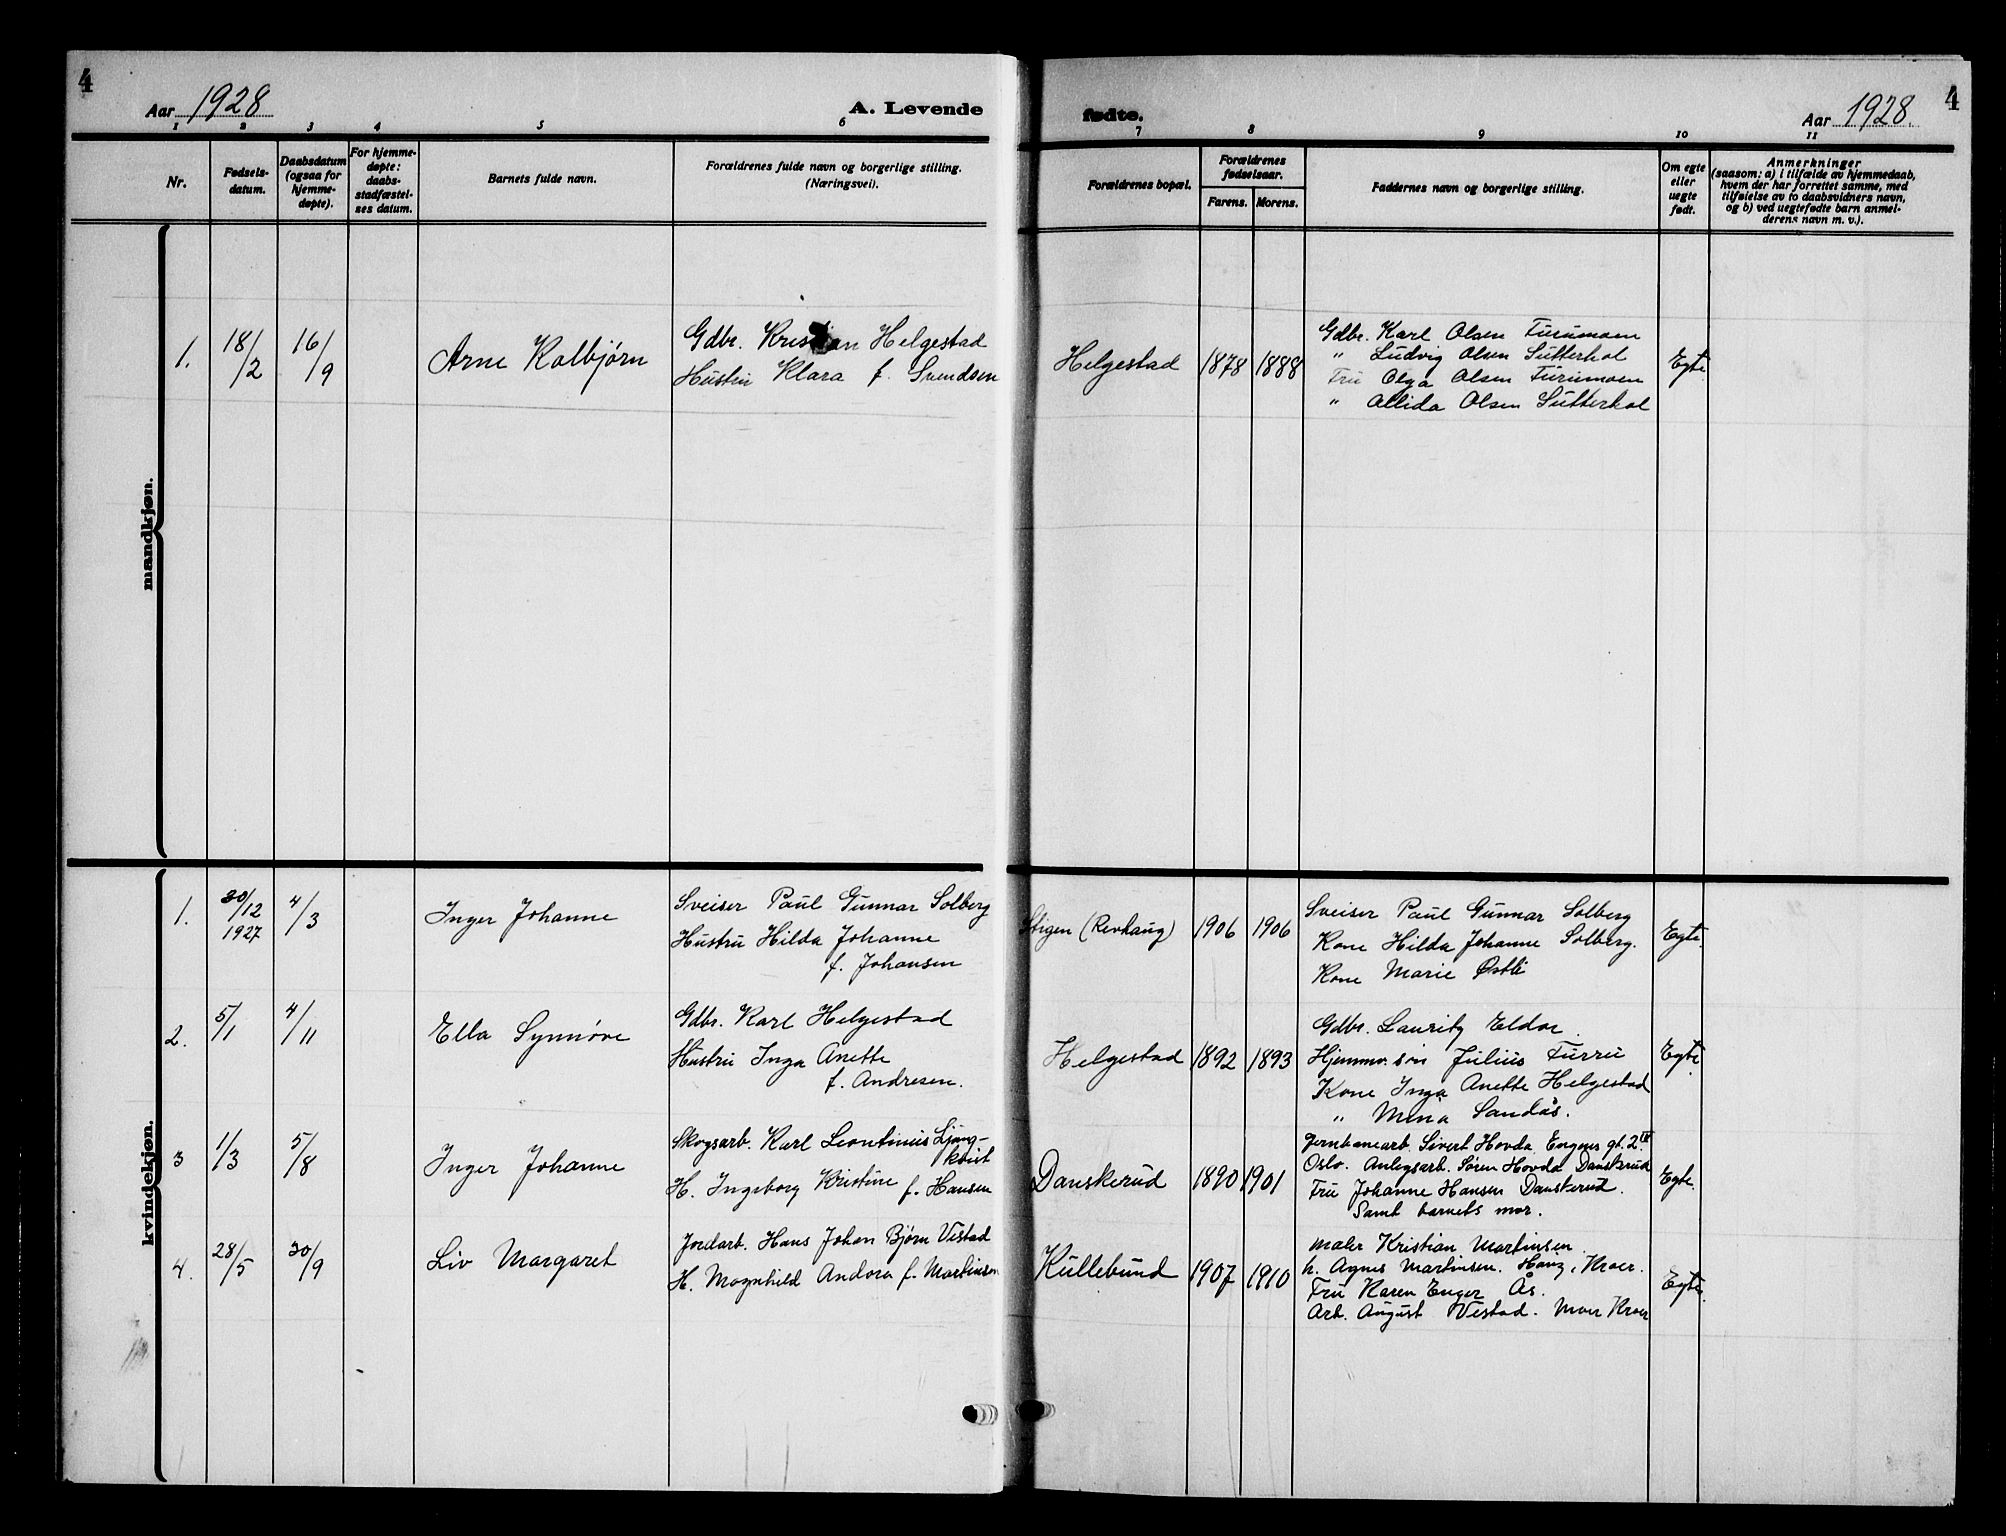 4
Aar 1928
A. Levende
1 2 3 4 5 6
Nr.
Fødsels-
datum.
Daabsdatum
(ogsaa for
hjemme-
døpte).
For hjemme-
døpte:
daabs-
stadfæstel-
ses datum.
Barnets fulde navn.
Forældrenes fulde navn og borgerlige stilling.
(Næringsvei).
mandkjøn.
1. 18/2 16/9 Arne Kolbjørn
Gdbr. Kristian Helgestad
Hustru Klara f. Svendsen
kvindekjøn.
1. 30/12 1927 4/3 Inger Johanne
Sveiser Paul Gunnar Solberg
Hustru Hilda Johanne
f. Johansen
2. 5/1 4/11 Ella Synnøve
Gdbr. Karl Helgestad
Hustru Inga Anette
f. Andresen.
3 1/3 5/8 Inger Johanne
Skogsarb. Karl Leontinius Ljung-
kvist
H. Ingeborg Kristine f. Hansen
4. 28/5 30/9 Liv Margaret
Jordarb. Hans Johan Bjørn Vestad
H. Magnhild Andora f. Martinsen
fødte.
Aar 1928.
4
7 8 9 10 11
Forældrenes bopæl.
Forældrenes
fødselsaar.
Farens. Morens.
Faddernes navn og borgerlige stilling.
Om egte
eller
uegte
født.
Anmerkninger
(saasom: a) i tilfælde av hjemmedaab,
hvem der har forrettet samme, med
tilføielse av to daabsvidners navn,
og b) ved uegtefødte barn anmel-
derens navn m. v.).
Helgestad 1878 1888
Gdbr. Karl Olsen Furumoen
" Ludvig Olsen Sutterhol
Fru Olga Olsen Furumoen
" Allida Olsen Sutterhol
Egte
Stigen (Revhaug) 1906 1906
Sveiser Paul Gunnar Solberg
Kone Hilda Johanne Solberg.
Kone Marie Østli
Egte.
Helgestad 1892 1893
Gdbr. Lauritz Eldor.
Hjemmv. søn Julius Furru
Kone Inga Anette Helgestad
" Mina Sandås.
Egte.
Danskerud 1890 1901
Jernbanearb. Sivert Hovda Engnes gt. 2 IV
Oslo. Anlegsarb. Søren Hovda Danskerud
Fru Johanne Hansen Danskerud.
Samt barnets mor.
Egte.
Kullebund 1907 1910
Maler Kristian Martinsen.
h. Agnes Martinsen. Haug, Kroer.
Fru Karen Enger Ås.
Arb. August Vestad. Kroer
Egte.